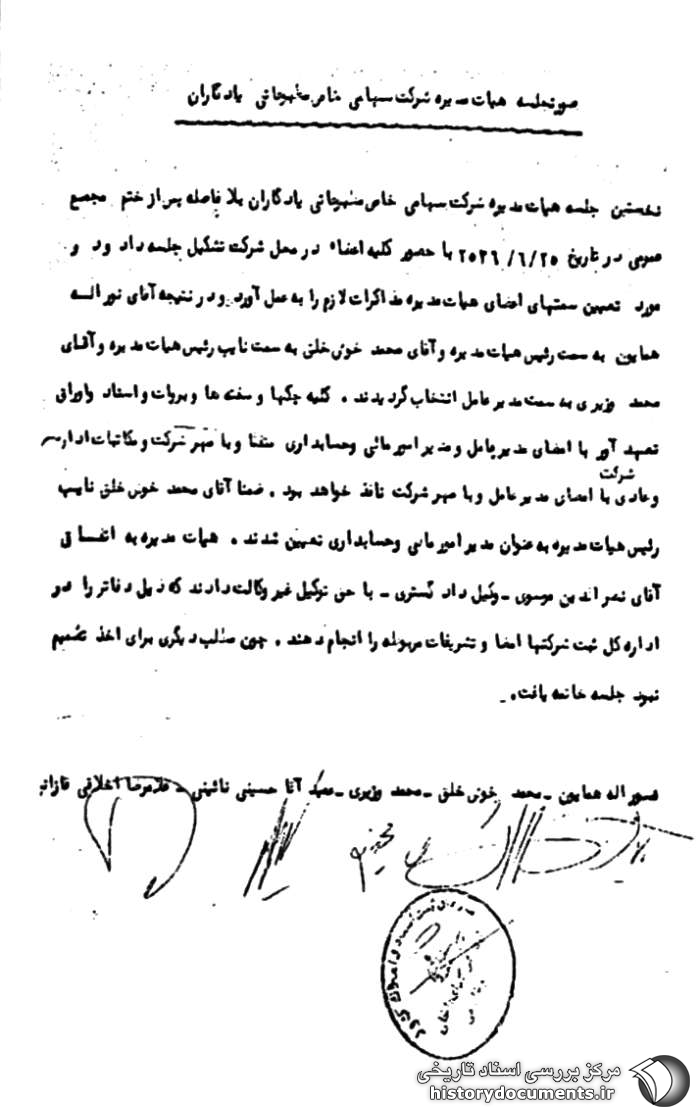 صورتجلسه هیات مدیره شرکت سهامی خاص منهوجاتی یادگاران
نخستین جلسه هیات مدیره شرکت سهامی خاص منهوجاتی یادگاران بلا فاصله پس از ختم مجمع
عمومی در تاریخ ۲۵۳۶/۶/۲۵ با حضور کلیه اعضاء در محل شرکت تشکیل جلسه داد و در
مورد تعیین سمتهای اعضای هیات مدیره مذاکرات لازم را به عمل آورد و در نتیجه آقای نوراله
همایون به سمت رئیس هیات مدیره و آقای محمد خوش خلق به سمت نایب رئیس هیات مدیره و آقای
محمد وزیری به سمت مدیر عامل انتخاب گردیدند . کلیه چکها و سفته ها و بروات و اسناد و اوراق
تعهد آور با امضای مدیر عامل و مدیر امور مالی و حسابداری متفقا و با مهر شرکت و مکاتبات اداری
شرکت
و عادی با امضای مدیر عامل و با مهر شرکت نافذ خواهد بود . ضمنا آقای محمد خوش خلق نایب
رئیس هیات مدیره به عنوان مدیر امور مالی و حسابداری تعیین شدند . هیات مدیره به اتفاق
آقای نصرالدین موسوی ـ وکیل دادگستری ـ با حق توکیل غیر وکالت دادند که ذیل دفاتر را در
اداره کل ثبت شرکتها امضا و تشریفات مربوطه را انجام دهند . چون مطلب دیگری برای اخذ تصمیم
نبود جلسه خاتمه یافت .
نوراله همایون ـ محمد خوش خلق ـ محمد وزیری ـ حسینی نائینی ـ غلامرضا اخلاقی
مرکز بررسی اسناد تاریخی
historydocuments.ir